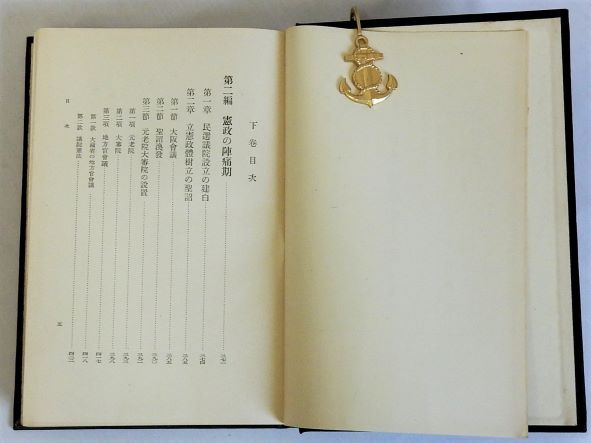 下卷目次
第二編 憲政の陣痛期
第一章 民選議院設立の建白
第二章 立憲政體樹立の聖詔
第一節 大阪會議
第二節 聖詔渙發
第三節 元老院大審院の設置
第一項 元老院
第二項 大審院
第三項 地方官會議
第一款 大藏省の地方官會議
第二款 議院憲法
目次
五